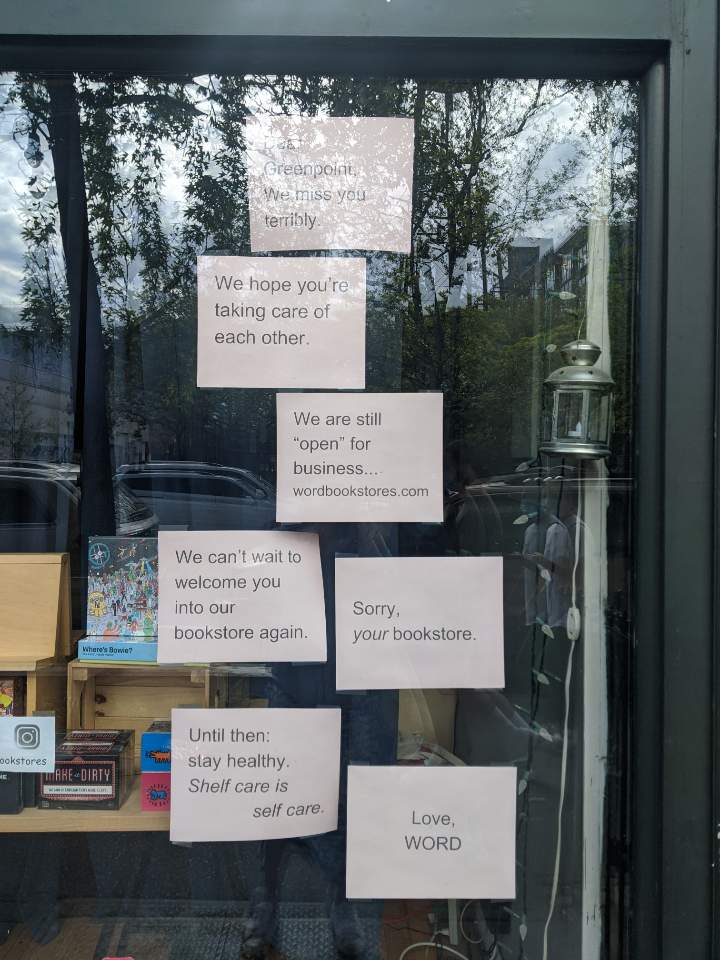 Dear
Greenpoint,
We miss you
terribly.
We hope you're
taking care of
each other.
We are still
“open” for
business...
wordbookstores.com
We can't wait to
welcome you
into our
bookstore again.
Sorry,
your bookstore.
Where's Bowie?
Until then:
stay healthy.
Shelf care is
self care.
ookstores
Love,
WORD